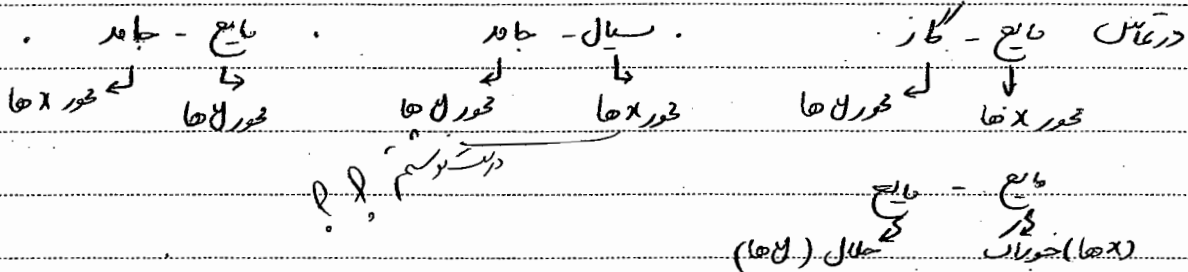 درتماس مایع - گاز . سیال - جامد . مایع - جامد .
محور x ها محور y ها محور x ها محور y ها محور y ها محور x ها
درست نوشتم؟!؟
مایع - مایع
(x ها) خوراک حلال (y ها)